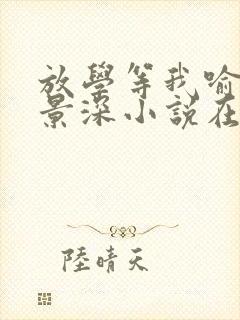 放學等我喻
景深小說在
陸晴天